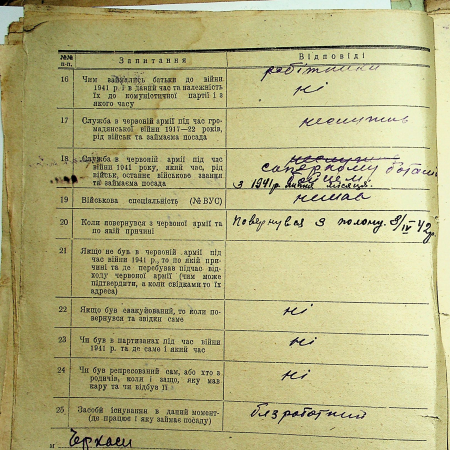 №№ п.п.
Запитання
Відповіді
робітники
16
Чим займались батьки до війни
1941 р. і в даний час та належність
їх до комуністичної партії і з
якого часу
ні
17
Служба в червоній армії під час гро-
мадянської війни 1917—22 років,
рід військ та займаема посада
неслужив
18
Служба в червоній армії під час
війни 1941 року, який час, рід
військ, останне військове звання
та займаема посада
саперному
з 1941 р.
19
Військова спеціяльність (№ ВУС)
немає
20
Коли повернувся з червоної армії та
по якій причині
Повернувся з полону. 9/IV 42 р
21
Якщо не був в червоній армії під
час війни 1941 р., то по якій при-
чині та де перебував підчас від-
ходу червоної армії (чим може
підтвердити, а коли свідками то їх
адреса)
22
Якщо був евакуйований, то коли по-
вернувся та звідки саме
ні
23
Чи був в партизанах під час війни
1941 р. та де саме і який час
ні
24
Чи був репресований сам, або хто з
родичів, коли і защо, яку мав
кару та чи відбув її
ні
25
Засоби існування в даний момент-
(де працює і яку займає посаду)
безработний
м
Черкаси